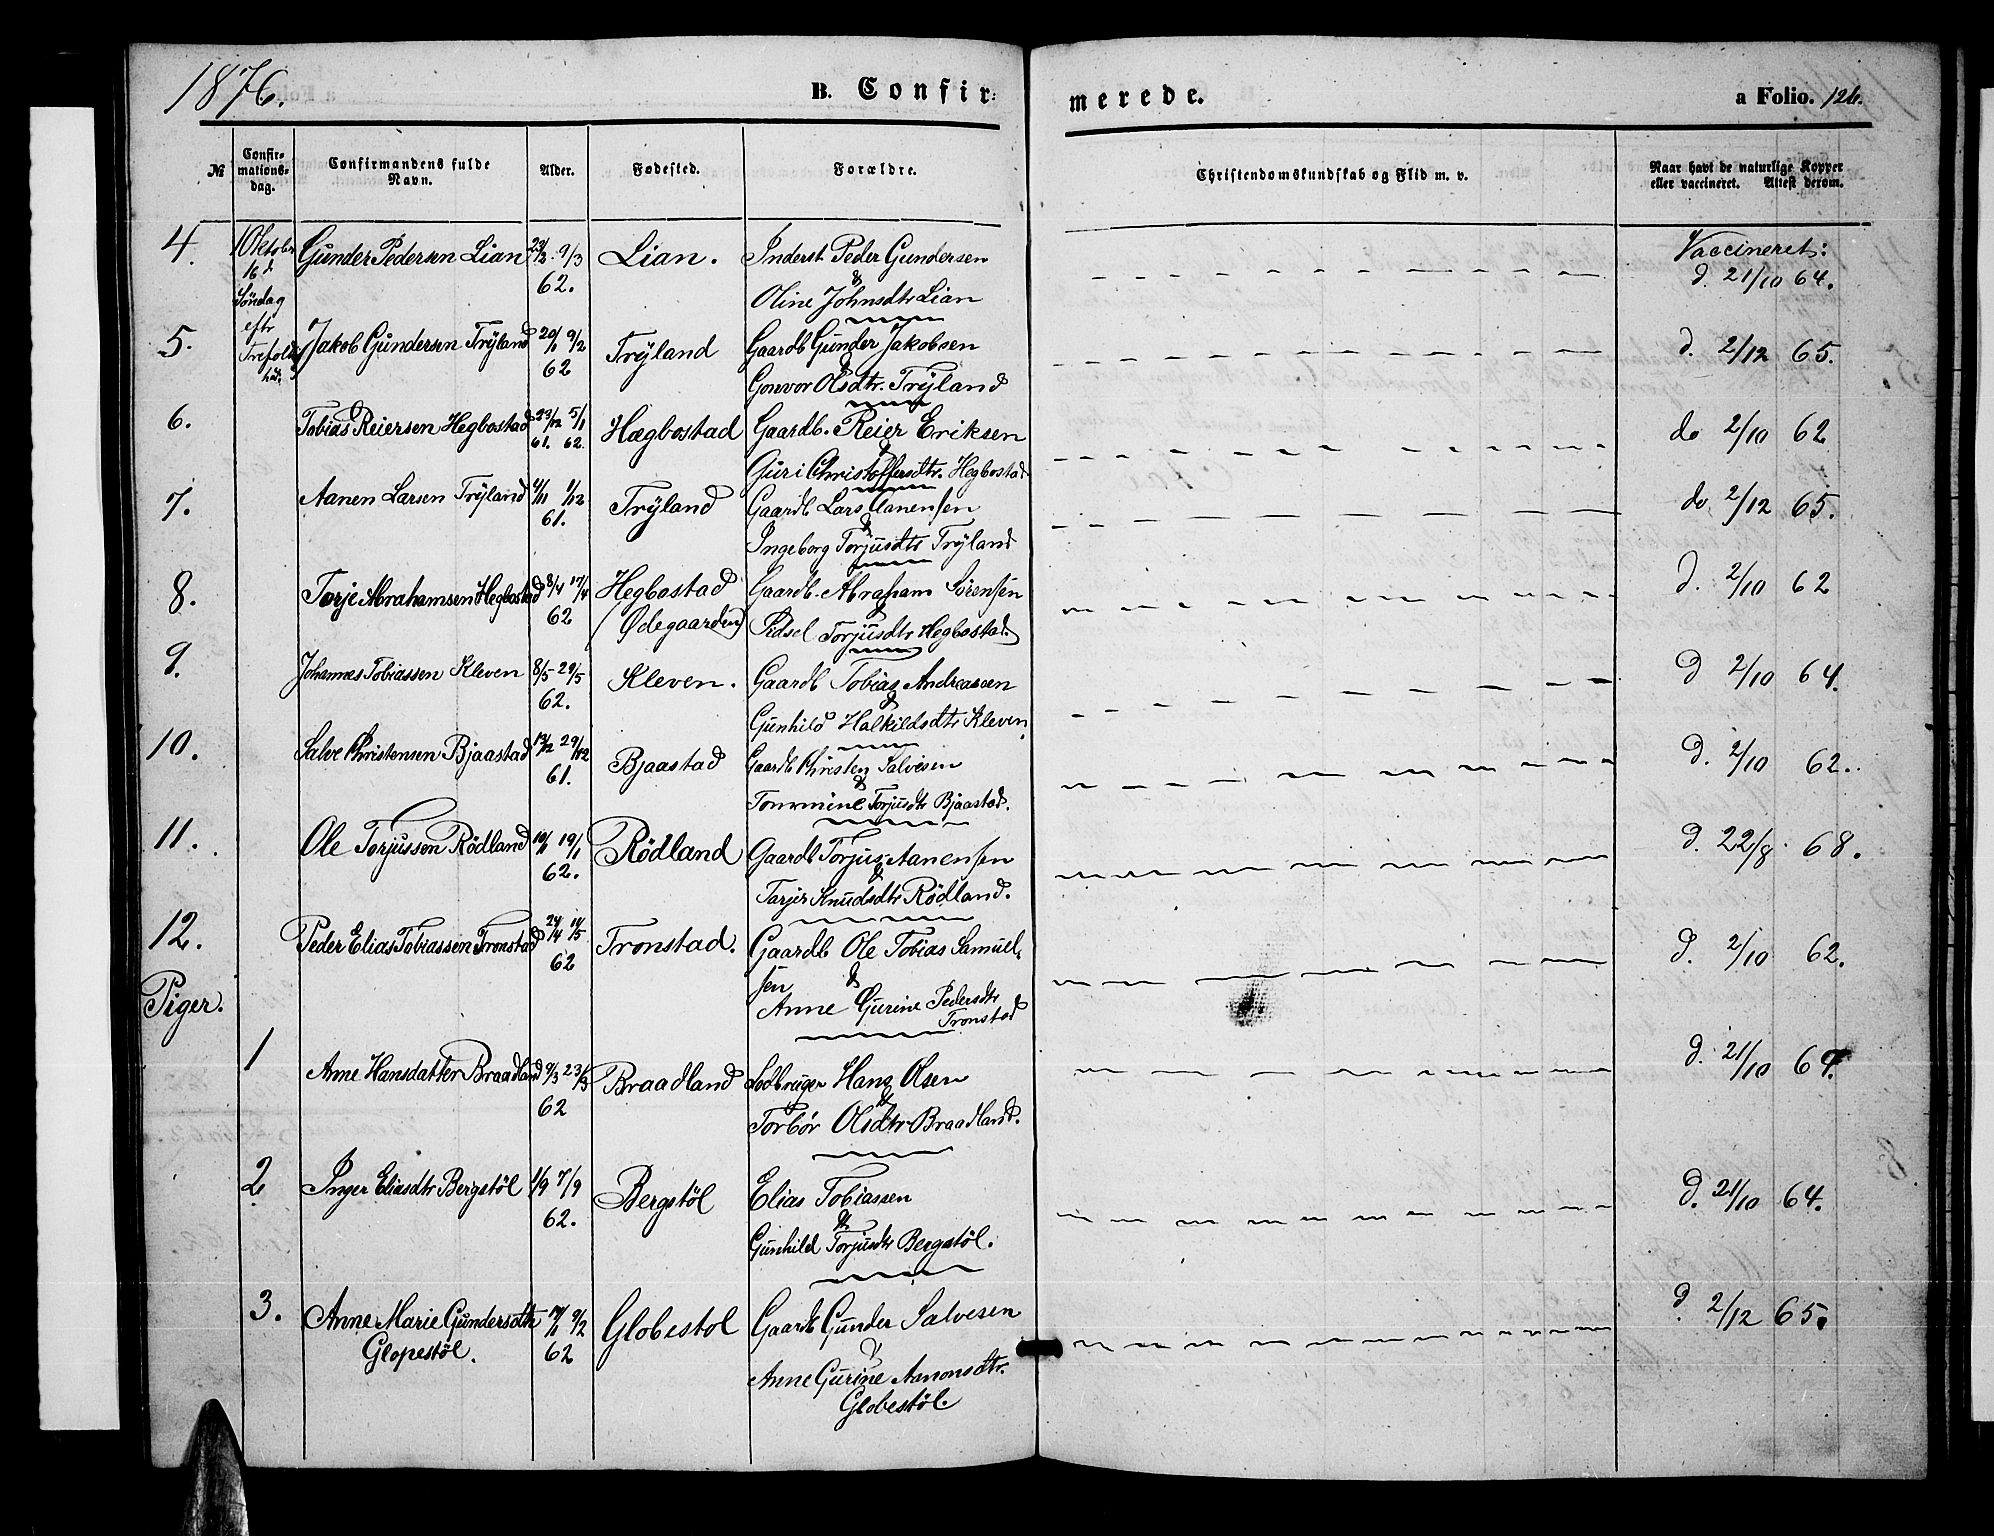 1876.
B. Confir-
merede.
a Folio. 126.
№
Confir-
mations-
dag.
Confirmandens fulde
Navn.
Alder.
Fødested.
Forældre.
Christendomskundskab og Flid m. v.
Naar havt de naturlige Kopper
eller vaccineret. Attest derom.
4.
1 Oktober
16d
Søndag
eftr
Trefoldig
hed.
Gunder Pedersen Lian
23/2 9/3
62.
Lian.
Inderst Peder Gundersen
&
Oline Johnsdtr Lian
Vaccineret:
d. 21/10 64.
5.
Jakob Gundersen Trÿland
20/1 9/2
62
Trÿland
Gaardb Gunder Jakobsen
&
Gonvor Olsdtr. Trÿland
d. 2/12 65.
6.
Tobias Reiersen Hegbostad
23/12 5/1
61. 62.
Hægbostad
Gaardb. Reier Eriksen
&
Guri Christoffersdtr. Hegbostad
do 2/10 62
7.
Aanen Larsen Trÿland
4/11 1/12
61.
Trÿland
Gaardb Lars Aanensen
&
Ingeborg Torjusdtr Trÿland
do 2/12 65.
8.
Torje Abrahamsen Hegbostad
8/4 17/4
62
Hegbostad
(Ødegaarden)
Gaardb. Abraham Sörensen
&
Sidsel Torjusdtr Hegbostad.
d. 2/10 62
9.
Johannes Tobiassen Kleven
8/5 29/5
62.
Kleven.
Gaardb Tobias Andreassen
&
Gunhild Halkildsdtr Kleven.
d 2/10 64.
10.
Salve Christensen Bjaastad
13/12 29/12
61.
Bjaastad
Gaardb Christen Salvesen
&
Tommine Torjusdtr Bjaastad.
d. 2/10 62.
11.
Ole Torjussen Rödland
10/1 19/1
62.
Rödland
Gaardb Torjus Aanensen
&
Tarjer Knudsdtr Rödland.
d. 22/8 68.
12.
Peder Elias Tobiassen Tronstad
24/4 11/5
62
Tronstad.
Gaardb Ole Tobias Samuel-
sen &
Anne Gurine Pedersdtr
Tronstad
d. 2/10 62.
Piger.
1
Anne Hansdatter Braadland
9/3 23/3
62
Braadland
Lodbruger Hans Olsen
&
Torbör Olsdtr Braadland.
d. 21/10 64.
2
Inger Eliasdtr Bergstöl
1/9 7/9
62.
Bergstöl
Elias Tobiassen
&
Gunhild Torjusdtr Bergstöl.
d. 21/10 64.
3.
Anne Marie Gundersdtr
Glopestöl.
9/2
62
Globestol
Gaardb Gunder Salvesen
&
Anne Gurine Aanonsdtr.
Globestöl.
d. 2/12 65.